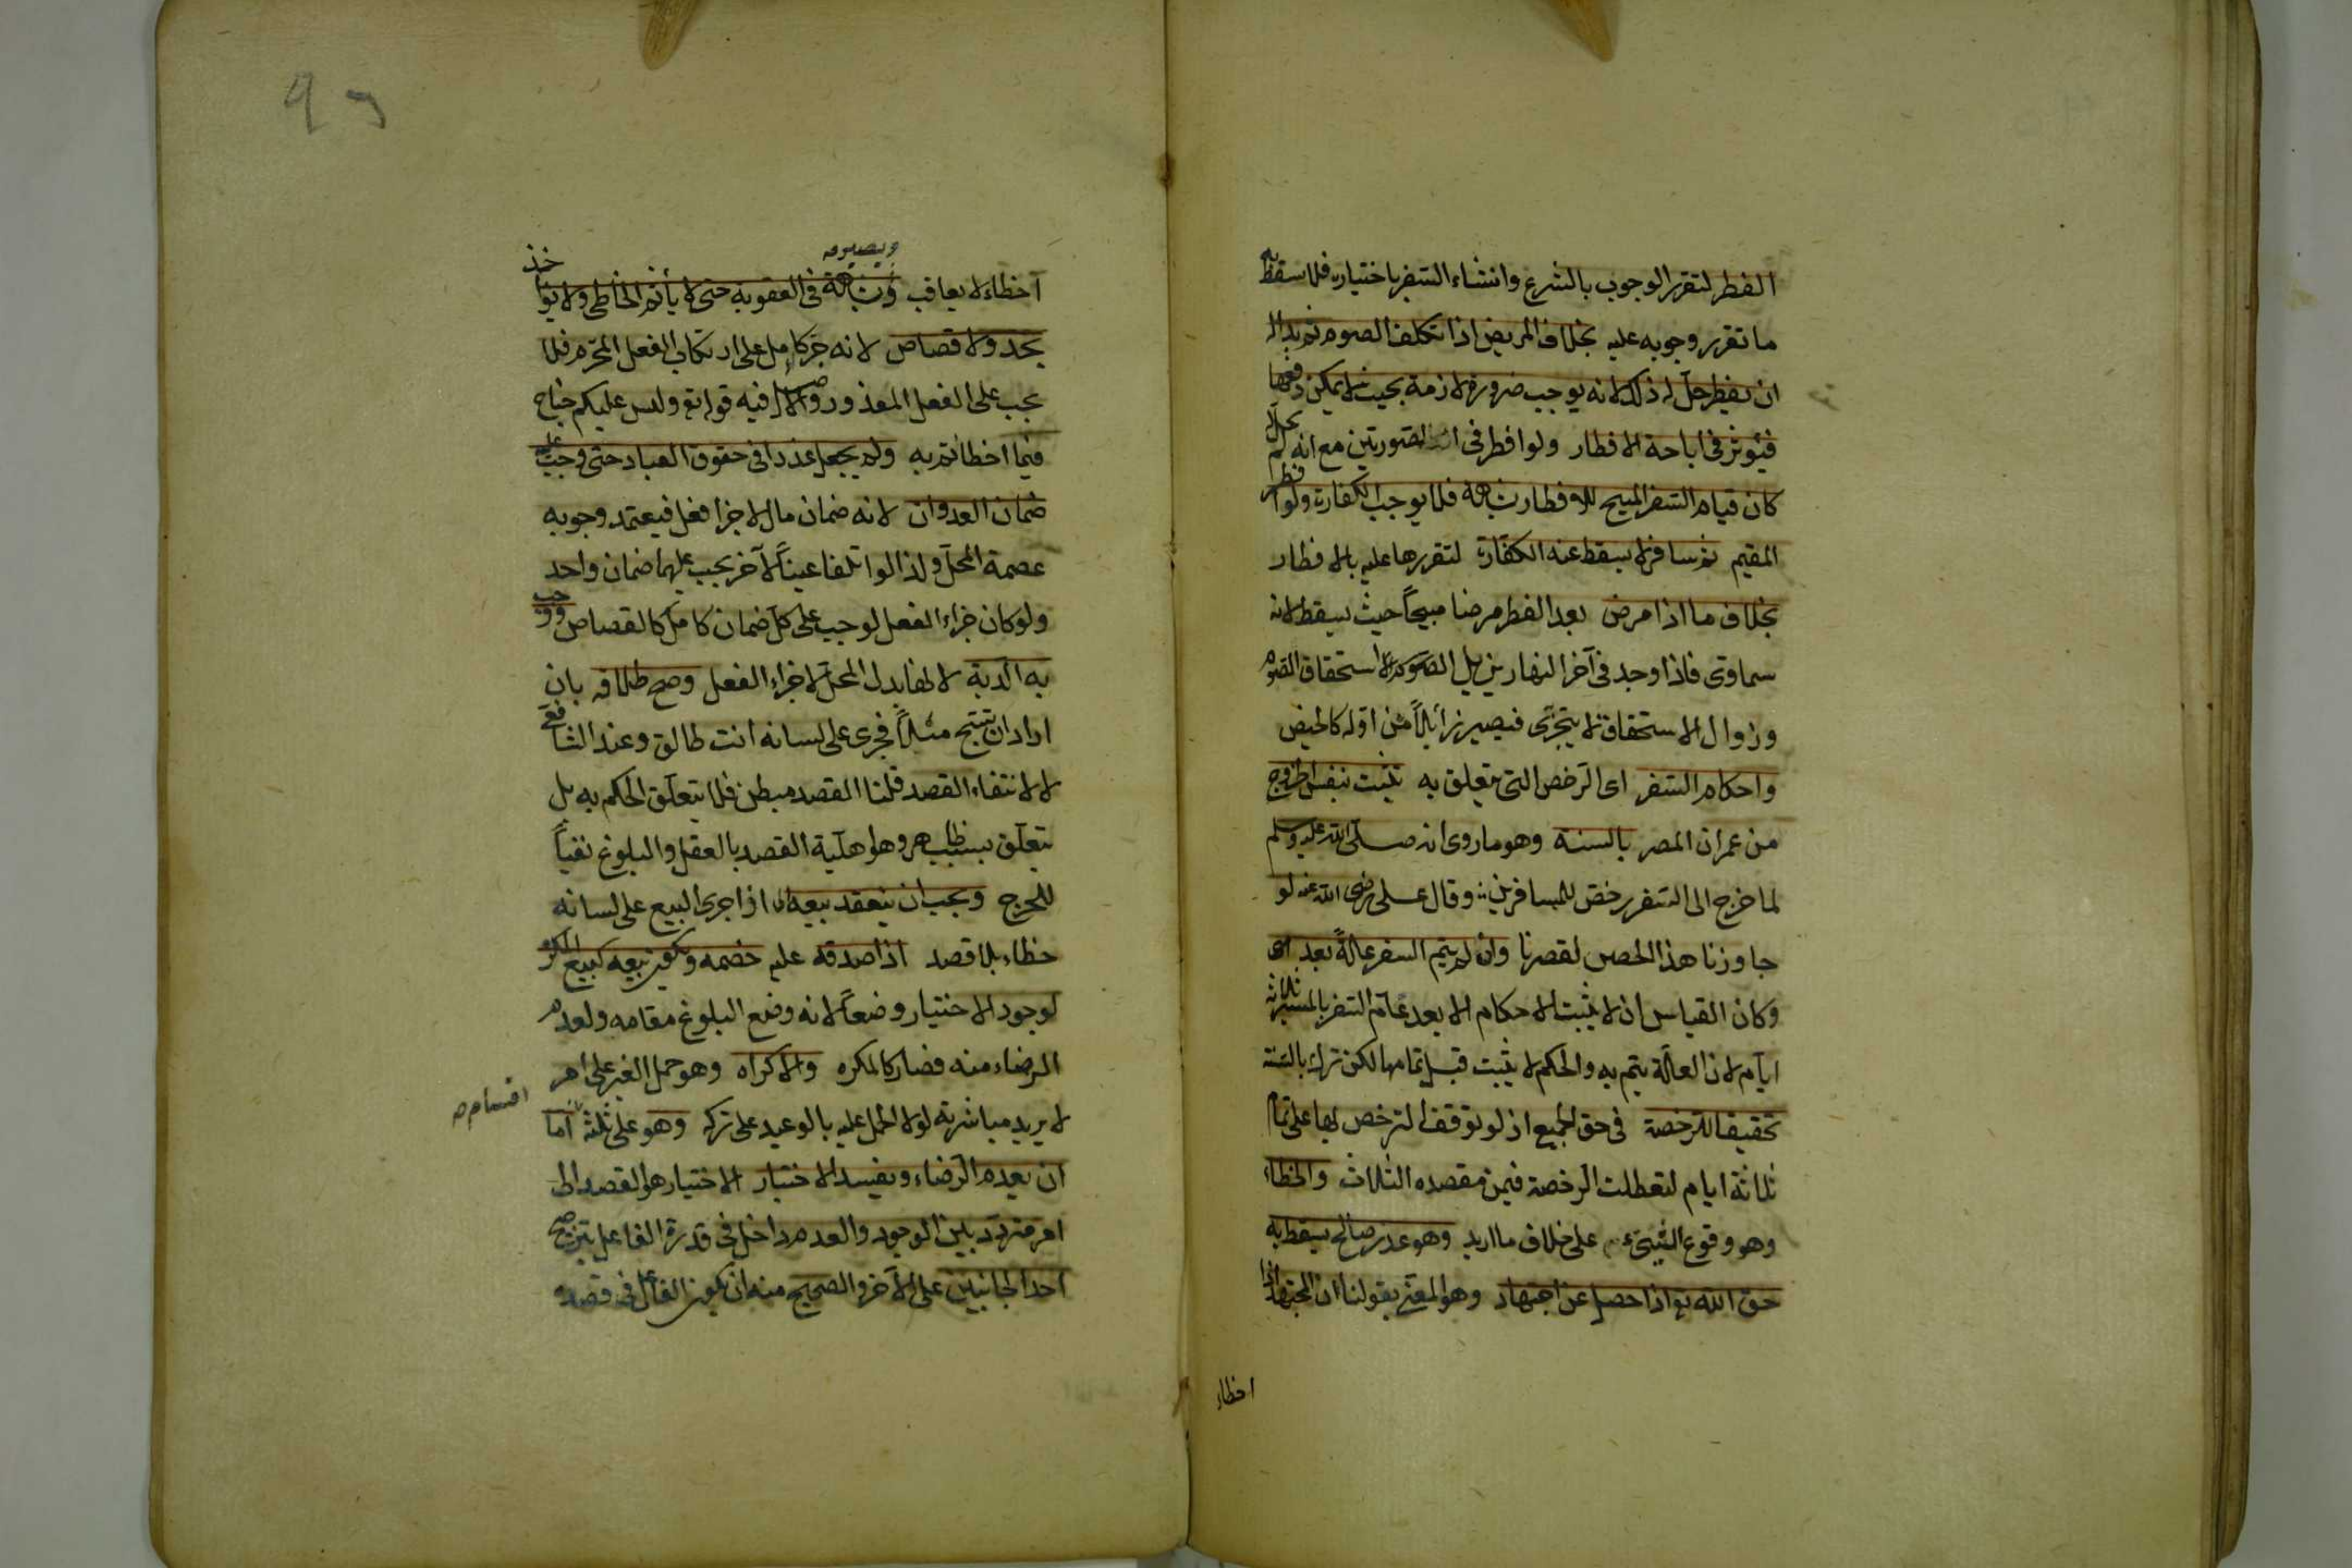 الفطر لتقرر الوجوب بالشرع وانشاء السفر باختياره فلا سقط به
ما تقرر وجوبه عليه بخلاف المريض اذا تكلف الصوم ثم بدا له
ان يفطر حل له ذلك لانه يوجب ضرورة لازمة بحيث لا يمكن دفعها
فيؤثر في اباحة الافطار ولو افطر في الصورتين مع انه لم يحل
كان قيام السفر المبيح للافطار شبهة فلا يوجب الكفارة ولو افطر
المقيم ثم سافر لا يسقط عنه الكفارة لتقررها عليه بالافطار
بخلاف ما اذا مرض بعد الفطر مرضا مبيحاً حيث يسقط لانه
سماوى فاذا وجد في آخر النهار يزيل استحقاق الصوم
وزوال الاستحقاق لا يتجزى فيصير زائلاً من اوله كالحيض
واحكام السفر اى الرخص التى يتعلق به تثبت بنفس الخروج
من عمران المصر بالسنة وهو ما روى انه صلى الله عليه وسلم
لما خرج الى السفر رخص للمسافرين وقال على رضى الله عنه لو
جاوزنا هذا الخص لقصرنا وان لم يتم السفر علةً بعد اى
وكان القياس ان لا يثبت الاحكام الا بعد تمام السفر بالمسير ثلاثة
ايام لان العلة يتم به والحكم لا يثبت قبل تمامها لكن ترك بالسنة
تحقيقا للرخصة في حق الجميع اذ لو توقف الترخص بها على تمام
ثلاثة ايام لتعطلت الرخصة فيمن مقصده الثلاث والخطاء
وهو وقوع الشىء على خلاف ما اريد وهو عذر صالح يسقط به
حق الله تع اذا حصل عن اجتهاد وهو المعنى بقولنا ان المجتهد اذا
اخطاء
اخطاء لا يعاقب ويصير شبهة في العقوبة حتى لا يأثم الخاطى ولا يواخذ
بحد ولا قصاص لانه جزاء كامل على ارتكاب الفعل المحرم فلا
يجب على الفعل المعذور والاصل فيه قوله تع وليس عليكم جناح
فيما اخطأتم به ولم يجعل عذرا في حقوق العباد حتى وجب عليه
ضمان العدوان لانه ضمان مال لا جزا فعل فيعتمد وجوبه
عصمة المحل ولذا لو اتلفا عيناً لآخر يجب عليهما ضمان واحد
ولو كان جزاء الفعل لوجب على كل ضمان كامل كالقصاص ووجب
به الدية لانها بدل المحل لا جزاء الفعل وصح طلاقه بان
اراد ان يسبّح مثلاً فجرى على لسانه انت طالق وعند الشافعى
لا لانتفاء القصد قلنا القصد مبطن فلا يتعلق الحكم به بل
يتعلق بسبب ظاهر وهو اهلية القصد بالعقل والبلوغ نفياً
للحرج ويجب ان ينعقد بيعه اى اذا جرى البيع على لسانه
خطاء بلا قصد اذا صدقه عليه خصمه ويكون بيعه كبيع المكره
لوجود الاختيار وضعاً لانه وضع البلوغ مقامه ولعدم
الرضاء منه فصار كالمكره والاكراه وهو حمل الغير على امر
لا يريد مباشرته لولا الحمل عليه بالوعيد على تركه وهو على ثلثة اما
اقسام صح
ان يعدم الرضاء ويفسد الاختيار الاختيار هو القصد الى
امر متردد بين الوجود والعدم داخل في قدرة الفاعل بترجيح
احد الجانبين على الآخر والصحيح منه ان يكون الفاعل في قصده